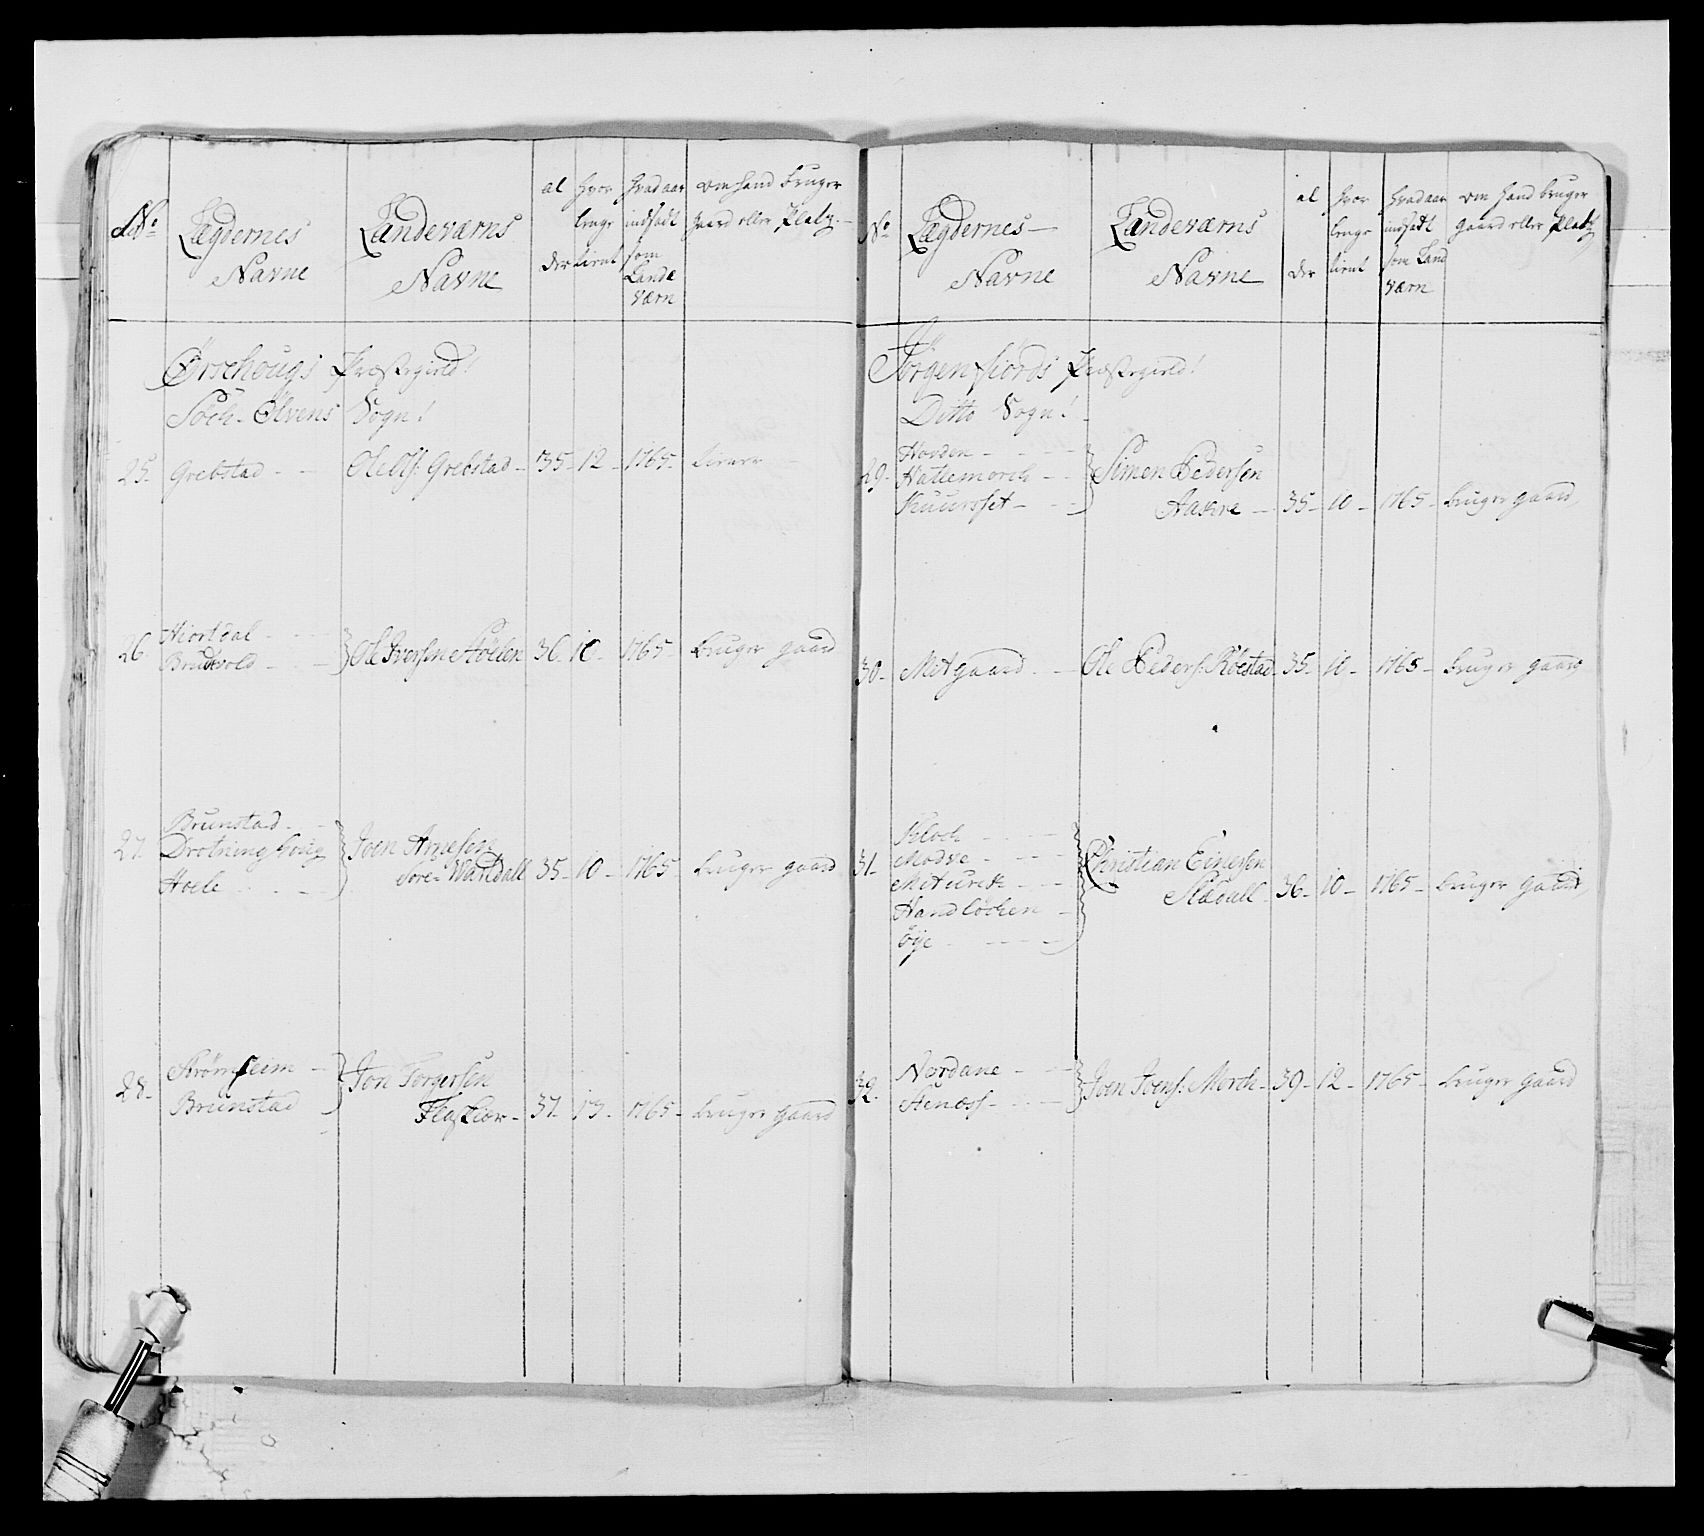 No
Lægdernes
Navne
Landeværns
Navne
al
der
hvor
lenge
tient
hvad aar
indsadt
som
Lande
værn
om hand bruger
gaard eller Platz
Ørschougs Præstegield!
Söch-Elvens Sogn!
25. Grebstad - - Ole Ols: Grebstad - 35 - 12 - 1765 -
26. Hiortdal - - -
Brudevold - - - Ole Iversen Høelen 36. 10 - 1765 - bruger gaard
27. Brunstad - -
Drotninghoug
Hoele - - - Joen Arnesen
Søre- 35 - 10 - 1765 - bruger gaard
28. Strømheim -
Brunstad
Jon Torgersen
37 - 13 - 1765 - bruger gaard
No
Lægdernes
Navne
Landeværns
Navne
al
der
hvor
lenge
tient
hvad aar
indsadt
som Land
værn
om hand bruger
gaard eller Platz
Jørgenfiords Præstegield!
Ditto Sogn!
29. Hovden - - -
Hatlemarch - -
- - Simen Pedersen
Aakre - 35 - 10 - 1765 - bruger gaard,
30 - Metgaard - - Ole Peders: Kolstad - 35 - 10 - 1765 - bruger gaard
31. Kloch - - -
Modve - - -
- - -
Handløchen -
Øye - - - - Christian Einersen
36 - 10 - 1765 - bruger gaard,
32. Nordane - - -
Stenæss - - - Joen Joens: Morch - 39 - 12 - 1765 - bruger gaard